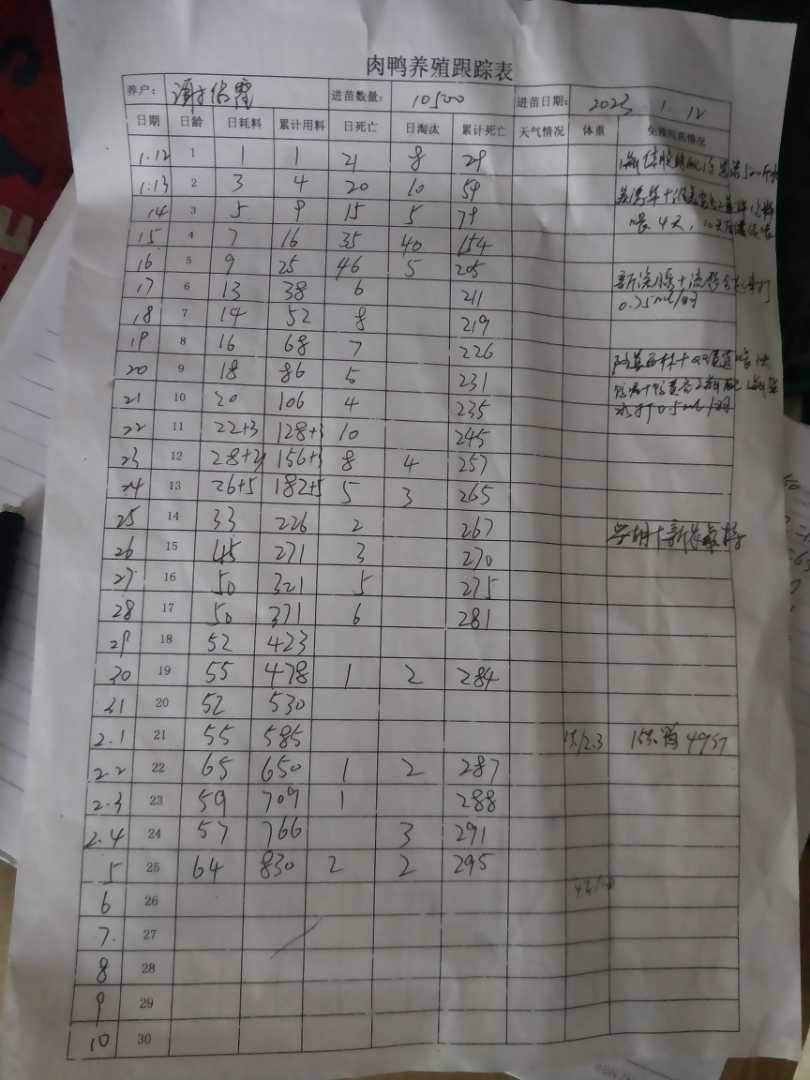 肉鸭养殖跟踪表
养户： 进苗数量： 10500 进苗日期： 2023 1. 12
日期 日龄 日耗料 累计用料 日死亡 日淘汰 累计死亡 天气情况 体重 免疫用药情况
1.12 1 1 1 21 8 29
1.13 2 3 4 20 10 59
14 3 5 9 15 5 79
15 4 7 16 35 40 154 4天,
16 5 9 25 46 5 205
17 6 13 38 6 211 0.25ml/羽
18 7 14 52 8 219
19 8 16 68 7 226
20 9 18 86 5 231
21 10 20 106 4 235 0.5ml/羽
22 11 22+3 128+3 10 245
23 12 28+2 156+ 8 4 257
24 13 26+5 182+5 5 3 265
25 14 33 226 2 267
26 15 45 271 3 270
27 16 50 321 5 275
28 17 50 371 6 281
29 18 52 423
30 19 55 478 1 2 284
31 20 52 530
2.1 21 55 585
2.2 22 65 650 1 2 287
2.3 23 59 709 1 288
2.4 24 57 766 3 291
5 25 64 830 2 2 295
6 26
7. 27
8 28
9 29
10 30